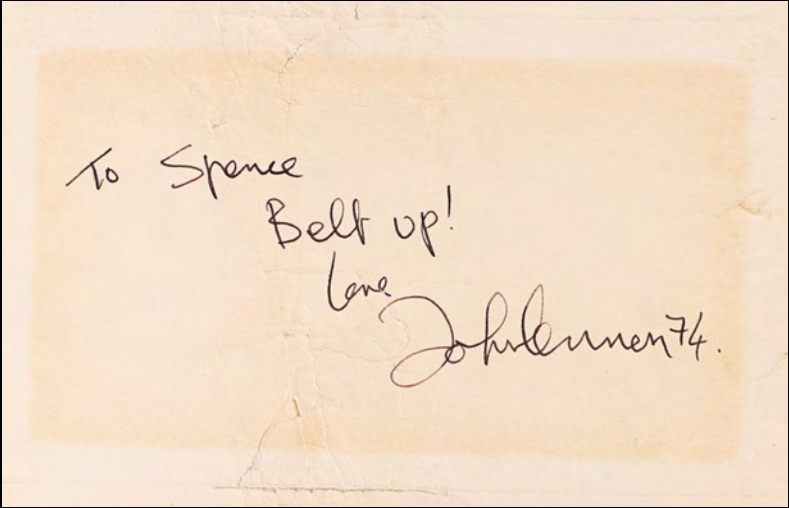 To Spence
Belt up!
Love
John Lennon 74.